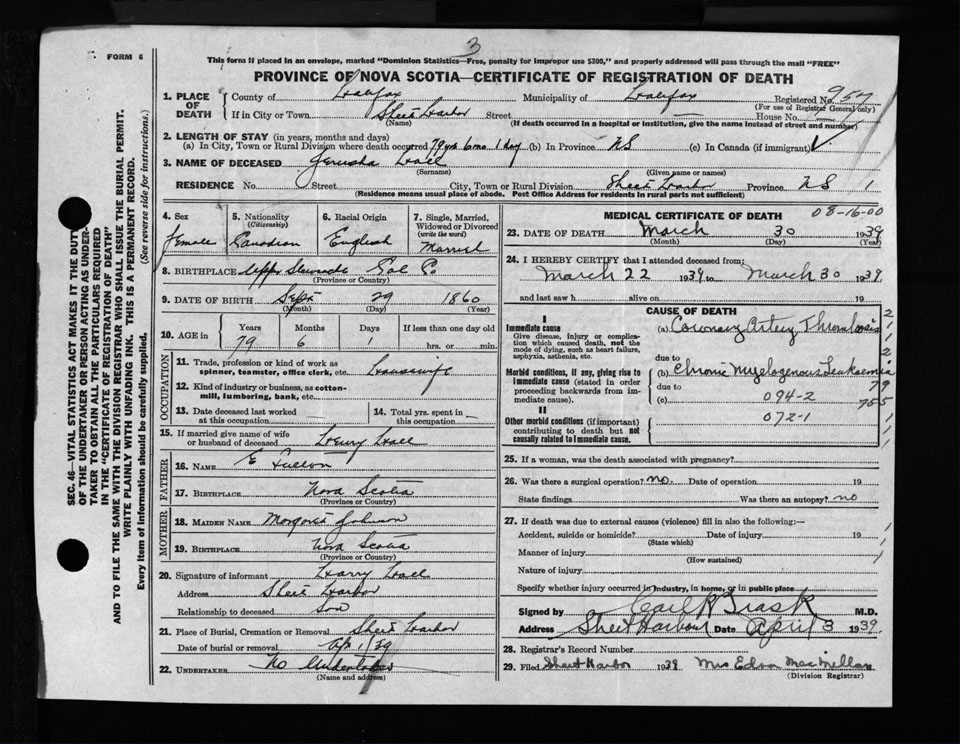 3
FORM 6
This form if placed in an envelope, marked "Dominion Statistics—Free, penalty for improper use $300," and properly addressed will pass through the mail "FREE"
PROVINCE OF NOVA SCOTIA—CERTIFICATE OF REGISTRATION OF DEATH
1. PLACE OF DEATH County of Halifax Municipality of Halifax Registered No. 957
(For use of Registrar General only)
If in City or Town Sheet Harbor Street — House No. —
(Name) (If death occurred in a hospital or institution, give the name instead of street and number)
2. LENGTH OF STAY (in years, months and days)
(a) In City, Town or Rural Division where death occurred 79 yrs 6 mo 1 day (b) In Province NS (c) In Canada (if immigrant)
3. NAME OF DECEASED Jerusha Hall
(Surname) (Given name or names)
RESIDENCE No. Street City, Town or Rural Division Sheet Harbor Province NS 1
(Residence means usual place of abode. Post Office Address for residents in rural parts not sufficient)
4. Sex Female
5. Nationality (Citizenship) Canadian
6. Racial Origin English
7. Single, Married, Widowed or Divorced (write the word) Married
8. BIRTHPLACE Upper Stewiacke Col Co
(Province or Country)
9. DATE OF BIRTH Sept 29 1860
(Month) (Day) (Year)
10. AGE in Years Months Days If less than one day
79 6 1 hrs. or min.
OCCUPATION
11. Trade, profession or kind of work as spinner, teamster, office clerk, etc. Housewife
12. Kind of industry or business, as cotton-mill, lumbering, bank, etc.
13. Date deceased last worked at this occupation —
14. Total yrs. spent in this occupation —
15. If married give name of wife or husband of deceased Henry Hall
FATHER
16. NAME E Fulton
17. BIRTHPLACE Nova Scotia
(Province or Country)
MOTHER
18. MAIDEN NAME Margaret Johnson
19. BIRTHPLACE Nova Scotia
(Province or Country)
20. Signature of informant Harry Hall
Address Sheet Harbor
Relationship to deceased Son
21. Place of Burial, Cremation or Removal Sheet Harbor
Date of burial or removal Ap 1/39
22. UNDERTAKER No Undertaker
(Name and address)
MEDICAL CERTIFICATE OF DEATH 08-16-00
23. DATE OF DEATH March 30 1939
(Month) (Day) (Year)
24. I HEREBY CERTIFY that I attended deceased from:
March 22 1939 to March 30 1939
and last saw h alive on 19
CAUSE OF DEATH
I
Immediate cause
Give disease, injury or complication which caused death, not the mode of dying, such as heart failure, asphyxia, asthenia, etc.
(a) Coronary Artery Thrombosis
due to
Morbid conditions, if any, giving rise to immediate cause (stated in order proceeding backwards from immediate cause).
(b) Chronic Myelogenous Leukaemia
due to
(c) 094-2
II
Other morbid conditions (if important) contributing to death but not causally related to immediate cause.
072-1
25. If a woman, was the death associated with pregnancy?
26. Was there a surgical operation? no. Date of operation 19
State findings Was there an autopsy? no
27. If death was due to external causes (violence) fill in also the following:—
Accident, suicide or homicide? Date of injury 19
(State which)
Manner of injury
(How sustained)
Nature of injury
Specify whether injury occurred in industry, in home, or in public place
Signed by Carl R Trask M.D.
Address Sheet Harbour Date April 3 1939.
28. Registrar's Record Number
29. Filed Sheet Harbor 1939 Mrs Edson MacMillan
(Division Registrar)
SEC. 46—VITAL STATISTICS ACT MAKES IT THE DUTY
OF THE UNDERTAKER OR PERSON ACTING AS UNDER-
TAKER TO OBTAIN ALL THE PARTICULARS REQUIRED
IN THE "CERTIFICATE OF REGISTRATION OF DEATH"
AND TO FILE THE SAME WITH THE DIVISION REGISTRAR WHO SHALL ISSUE THE BURIAL PERMIT.
WRITE PLAINLY WITH UNFADING INK. THIS IS A PERMANENT RECORD.
Every item of information should be carefully supplied. (See reverse side for instructions.)